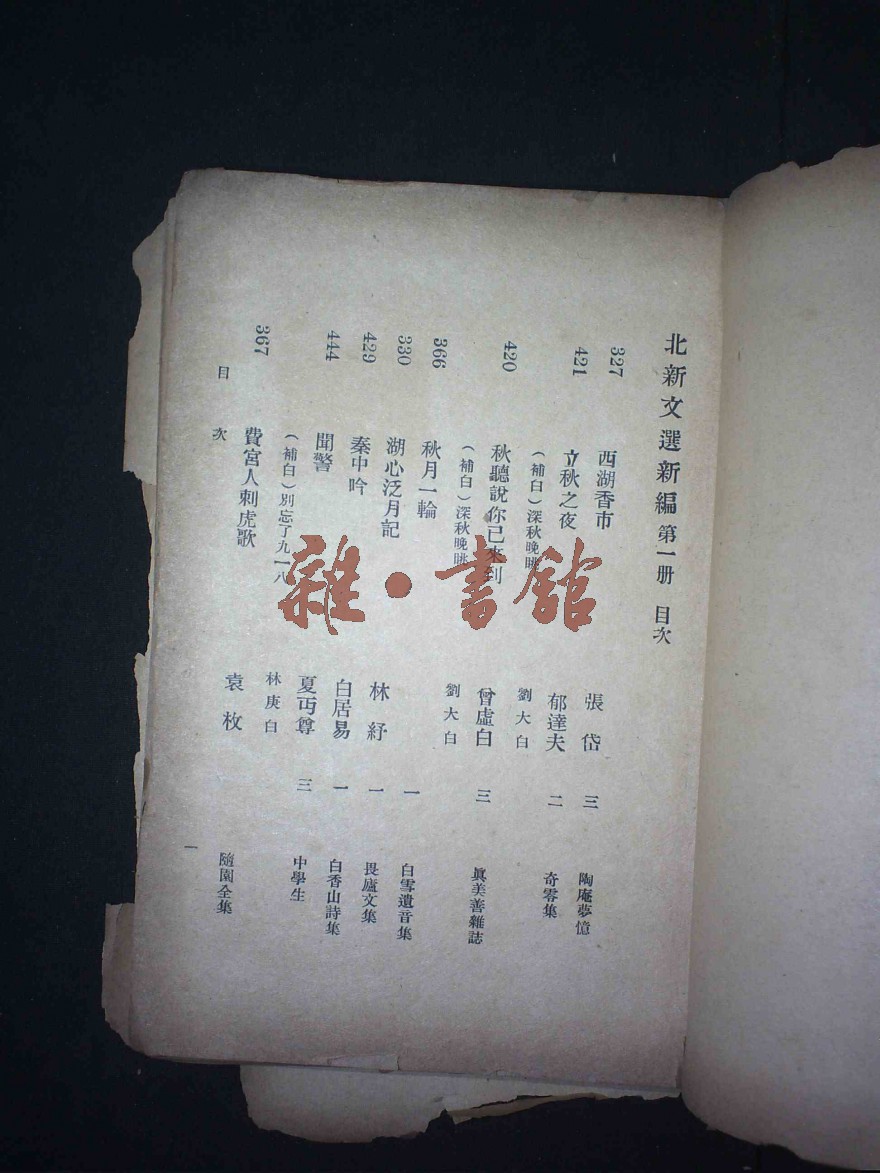 北新文選新編 第一册 目次
327 西湖香市 張岱 三 陶庵夢憶
421 立秋之夜 郁達夫 二 奇零集
（補白）深秋晚眺 劉大白
420 秋聽說你已來到 曾虛白 三 眞美善雜誌
（補白）深秋晚眺 劉大白
366 秋月一輪 一 白雪遺音集
330 湖心泛月記 林紓 一 畏廬文集
429 秦中吟 白居易 一 白香山詩集
444 聞警 夏丏尊 三 中學生
（補白）別忘了九一八 林庚白
367 費宮人刺虎歌 袁枚 隨園全集
目次 一
雜·書館